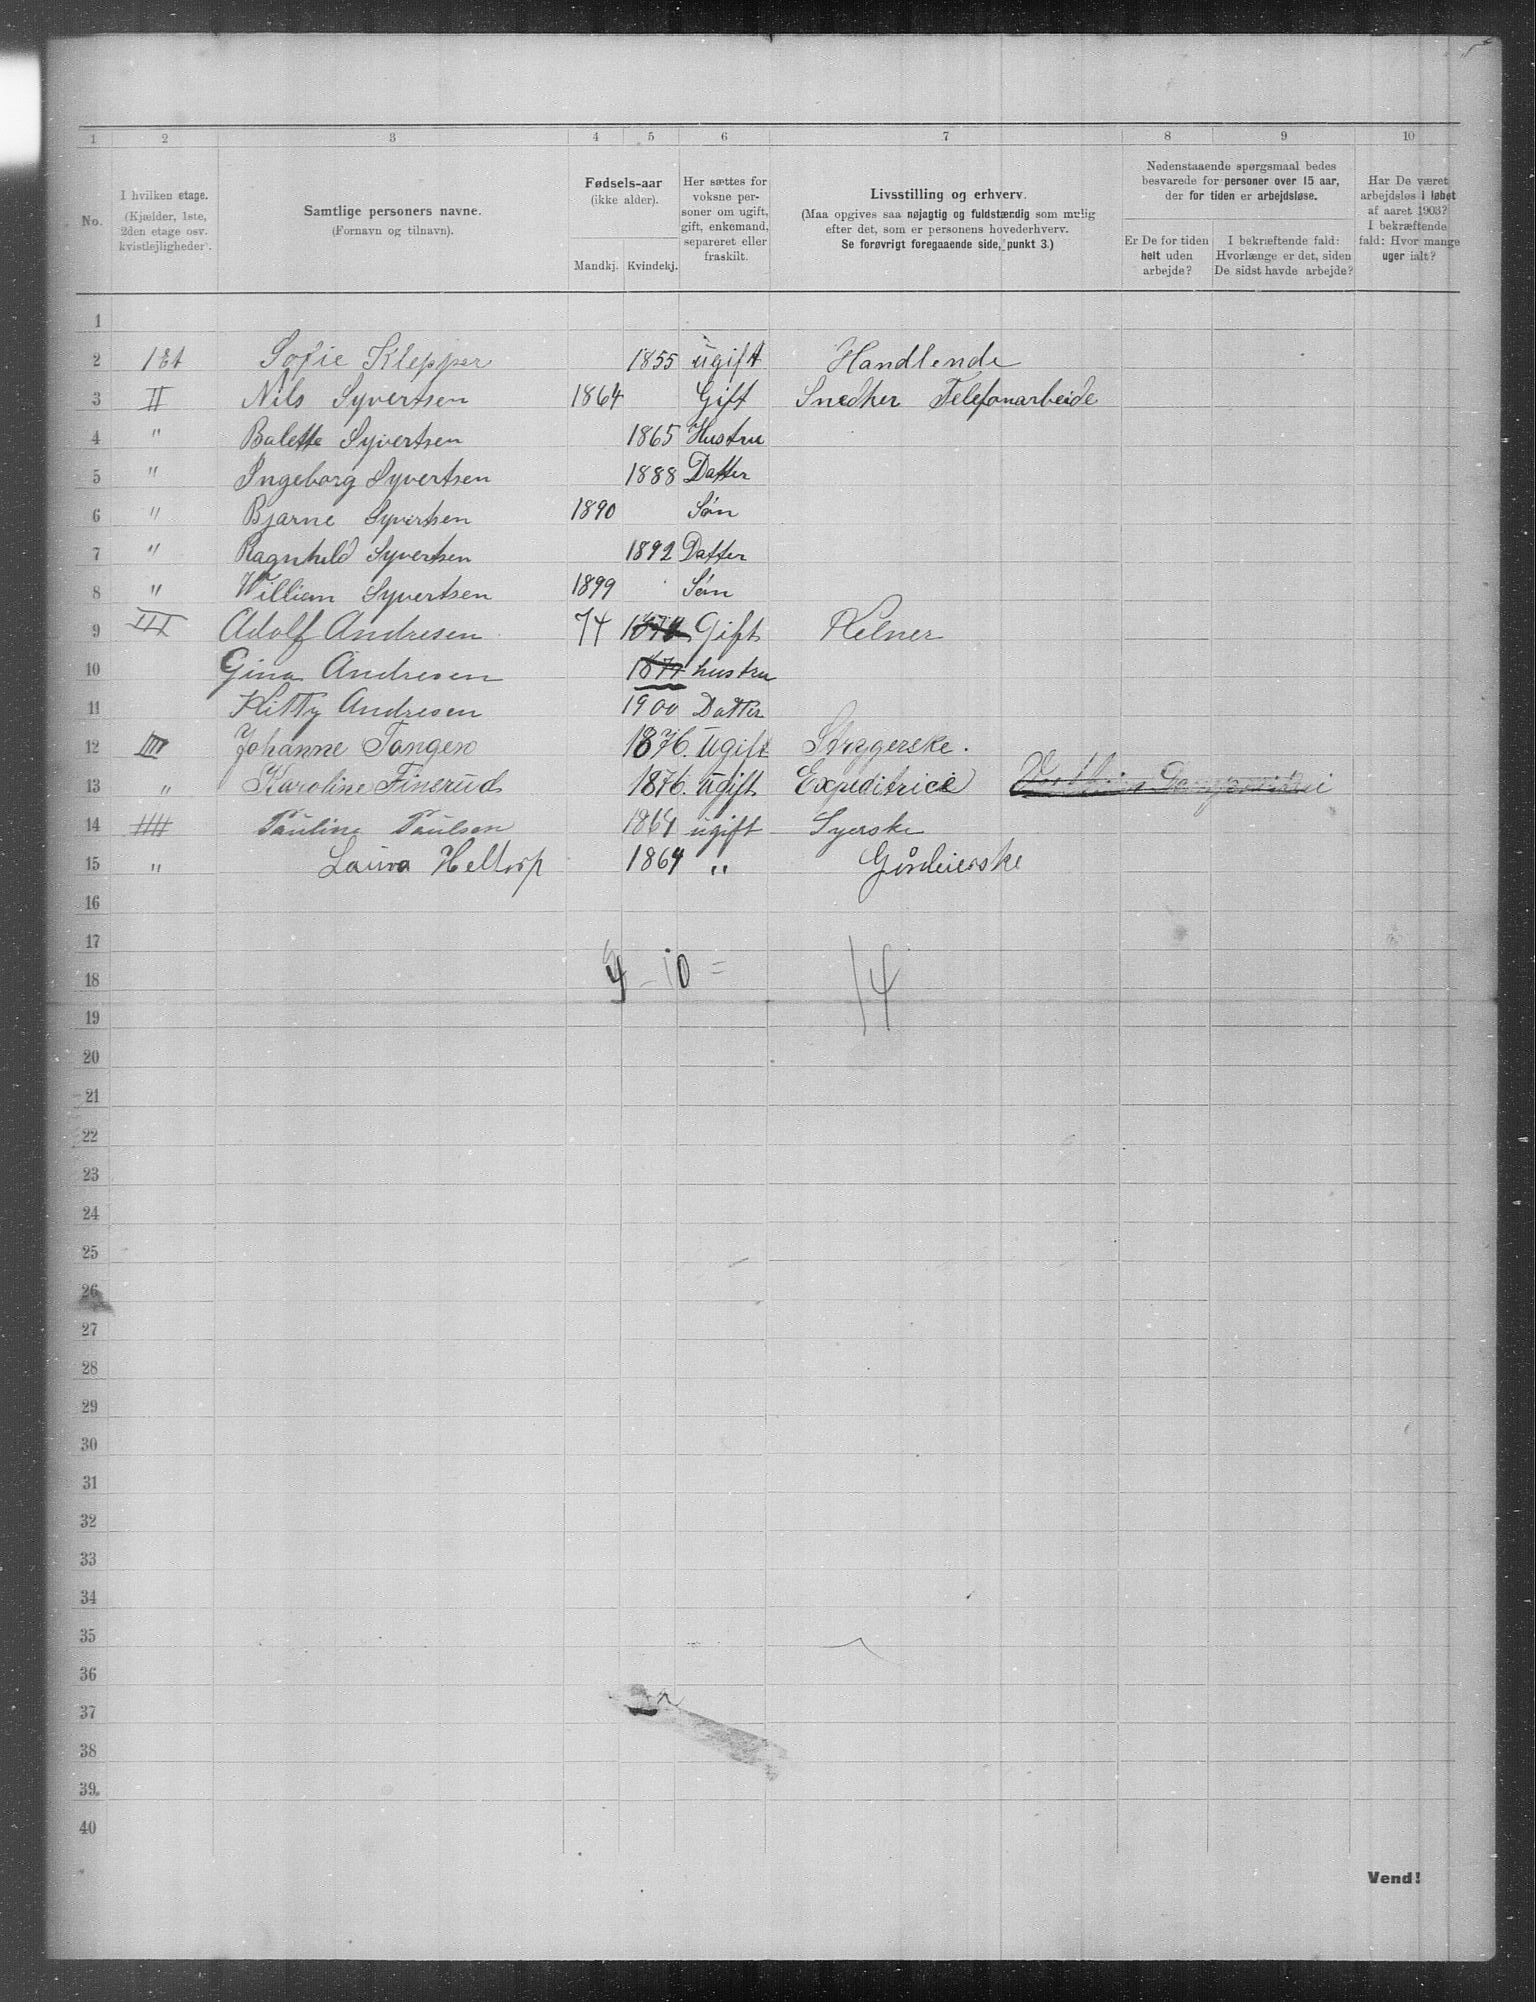 1 2 3 4 5 6 7 8 9 10
No.
I hvilken etage.
(Kjælder, 1ste,
2den etage osv.
kvistlejligheder.
Samtlige personers navne.
(Fornavn og tilnavn).
Fødsels-aar
(ikke alder).
Mandkj. Kvindekj.
Her sættes for
voksne per-
soner om ugift,
gift, enkemand,
separeret eller
fraskilt.
Livsstilling og erhverv.
(Maa opgives saa nøjagtig og fuldstændig som mulig
efter det, som er personens hovederhverv.
Se forøvrigt foregaaende side, punkt 3.)
Nedenstaaende spørgsmaal bedes
besvarede for personer over 15 aar,
der for tiden er arbejdsløse.
Er De for tiden
helt uden
arbejde?
I bekræftende fald:
Hvorlænge er det, siden
De sidst havde arbejde?
Har De været
arbejdsløs i løbet
af aaret 1903?
I bekræftende
fald: Hvor mange
uger ialt?
1
2 1 Et Sofie Klepper 1855 ugift Handlende
3 II Nils Syvertsen 1864 Gift Snedker Telefonarbeide
4 " Balette Syvertsen 1865 Hustru
5 " Ingeborg Syvertsen 1888 Datter
6 " Bjarne Syvertsen 1890 Søn
7 " Ragnhild Syvertsen 1892 Datter
8 " William Syvertsen 1899 Søn
9 III Adolf Andresen 74 1874 Gift Kelner
10 Gina Andresen 1877 hustru
11 Kitty Andresen 1900 Datter
12 III Johanne Tangen 1876. Ugift Strygerske.
13 " Karoline Finerud 1876. ugift Expeditrice
14 IIII Pauline Paulsen 1864 ugift Syerske
15 " Laura Heltorp 1864 "
16
17
18 4 - 10 = 14
19
20
21
22
23
24
25
26
27
28
29
30
31
32
33
34
35
36
37
38
39
40
Vend!